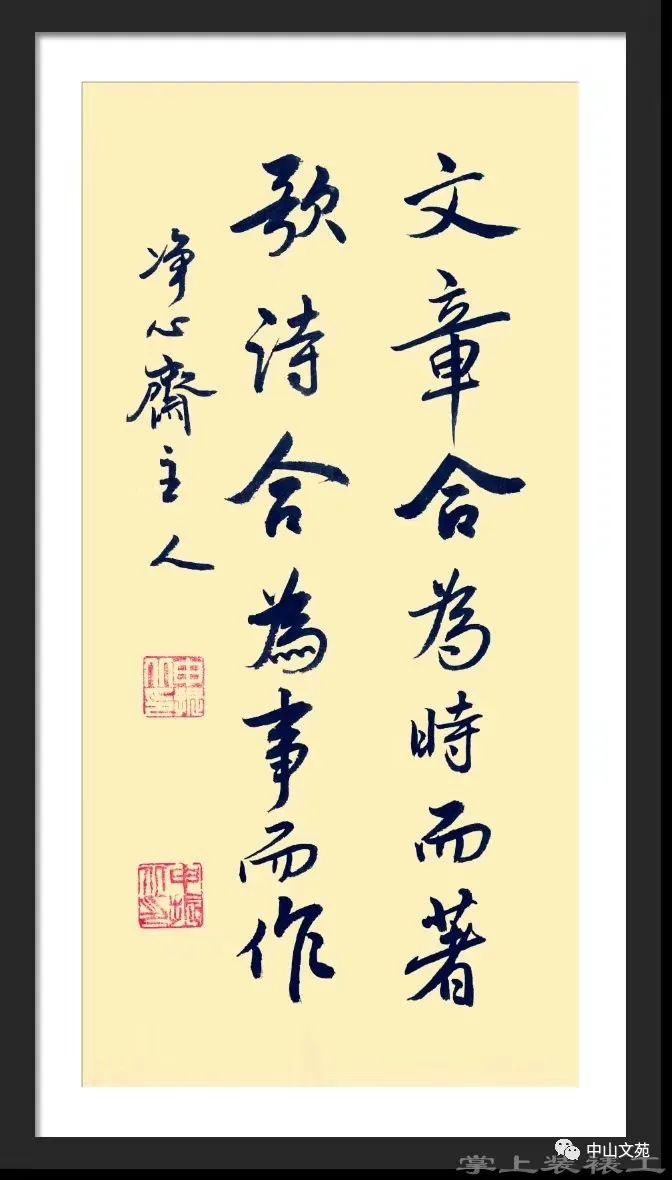 文章合為時而著
歌詩合為事而作
净心齋主人
中山文苑
掌上装裱工